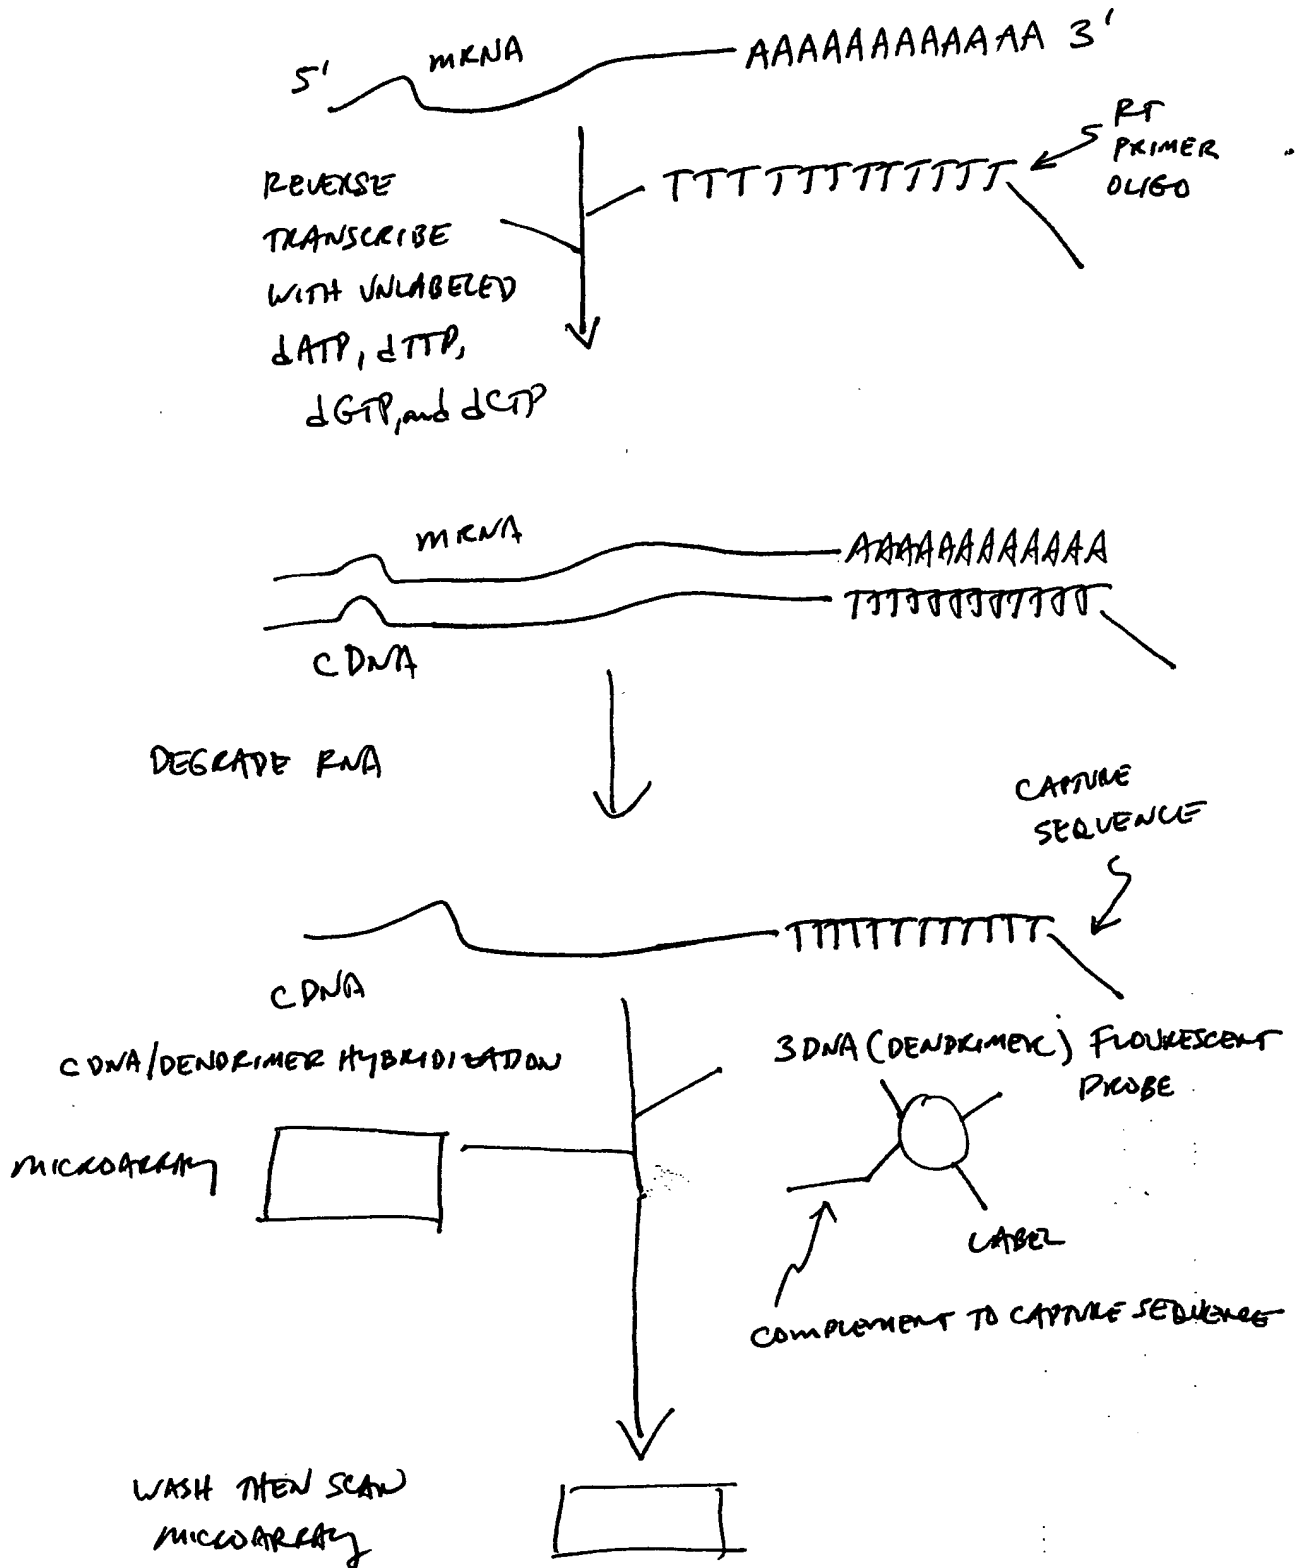 5' mRNA AAAAAAAAAAAA 3'
RT
PRIMER
OLIGO
TTTTTTTTTTTT
REVERSE
TRANSCRIBE
WITH UNLABELED
dATP, dTTP,
dGTP, and dCTP
mRNA
AAAAAAAAAAA
TTTTTTTTTTT
CDNA
DEGRADE RNA
CAPTURE
SEQUENCE
TTTTTTTTTTTT
CDNA
CDNA/DENDRIMER HYBRIDIZATION
3DNA (DENDRIMER) FLOURESCENT
PROBE
MICROARRAY
LABEL
COMPLEMENT TO CAPTURE SEQUENCE
WASH THEN SCAN
MICROARRAY